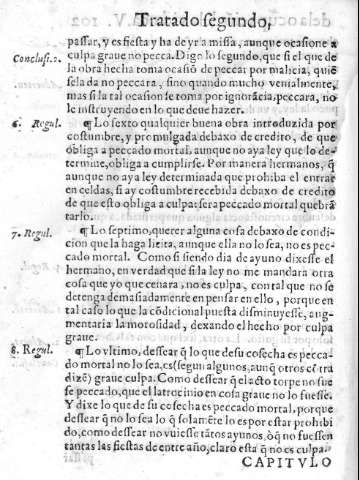 Tratado segundo,
passar, y es fiesta y ha de yr a missa, aunque ocasione a
Conclusi.2.
culpa graue no pecca. Digo lo segundo, que si el que de
la obra hecha toma ocasiõ de peccar por malicia, quiẽ
se la da no peccara, sino quando mucho venialmente,
mas si la tal ocasion se toma por ignorãcia, peccara, no
le instruyendo en lo que deue hazer.
6. Regul.
¶ Lo sexto qualquiera buena obra introduzida por
costumbre, y promulgada debaxo de credito, de que
obliga a peccado mortal, aunque no aya ley que lo de-
termine, obliga a cumplirse. Por manera hermanos, q̃
aunque no aya ley determinada que prohiba el entrar
en celdas, si ay costumbre recebida debaxo de credito
de que esto obliga a culpa: sera peccado mortal quebrã
tarlo.
7. Regul.
¶ Lo septimo, querer alguna cosa debaxo de condi-
cion que la haga licita, aunque ella no lo sea, no es pec-
cado mortal. Como si siendo dia de ayuno dixesse el
hermano, en verdad que si la ley no me mandara otra
cosa que yo que cenara, no es culpa, con tal que no se
detenga demasiadamente en pensar en ello, porque en
tal caso lo que la cõdicional puesta disminuyesse, aug-
mentaria la morosidad, dexando el hecho por culpa
graue.
8. Regul.
¶ Lo vltimo, dessear q̃ lo que de su cosecha es pecca-
do mortal no lo sea, es (segun algunos, aunq̃ otros cõtra
dizẽ) graue culpa. Como dessear q̃ el acto torpe no fue
se peccado, que el latrocinio en cosa graue no lo fuesse.
Y dixe lo que de su cosecha es peccado mortal, porque
dessear q̃ no lo sea lo q̃ solamẽte lo es por estar prohibi
do, como dessear no vuiesse tãtos ayunos, o q̃ no fuessen
tantas las fiestas de entre año, claro esta q̃ no es culpa.
CAPITVLO